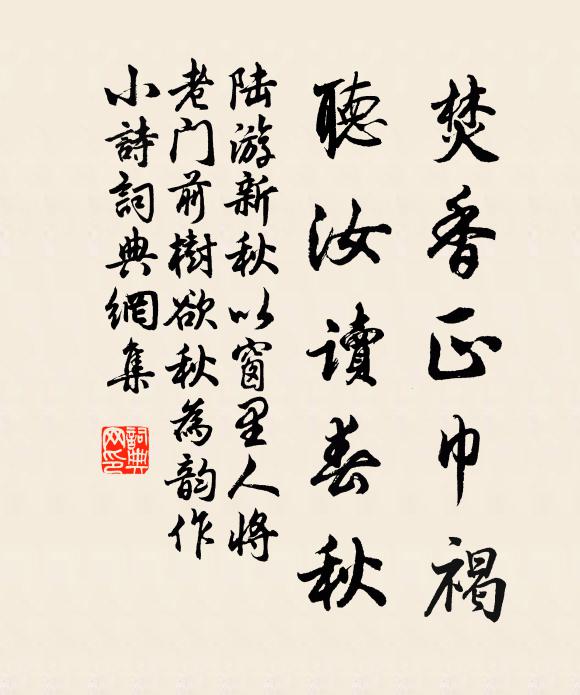 焚香正巾褐
聽汝讀春秋
陆游新秋以窗里人將
老门前樹欲秋為韵作
小詩詞典網集
詞典网印